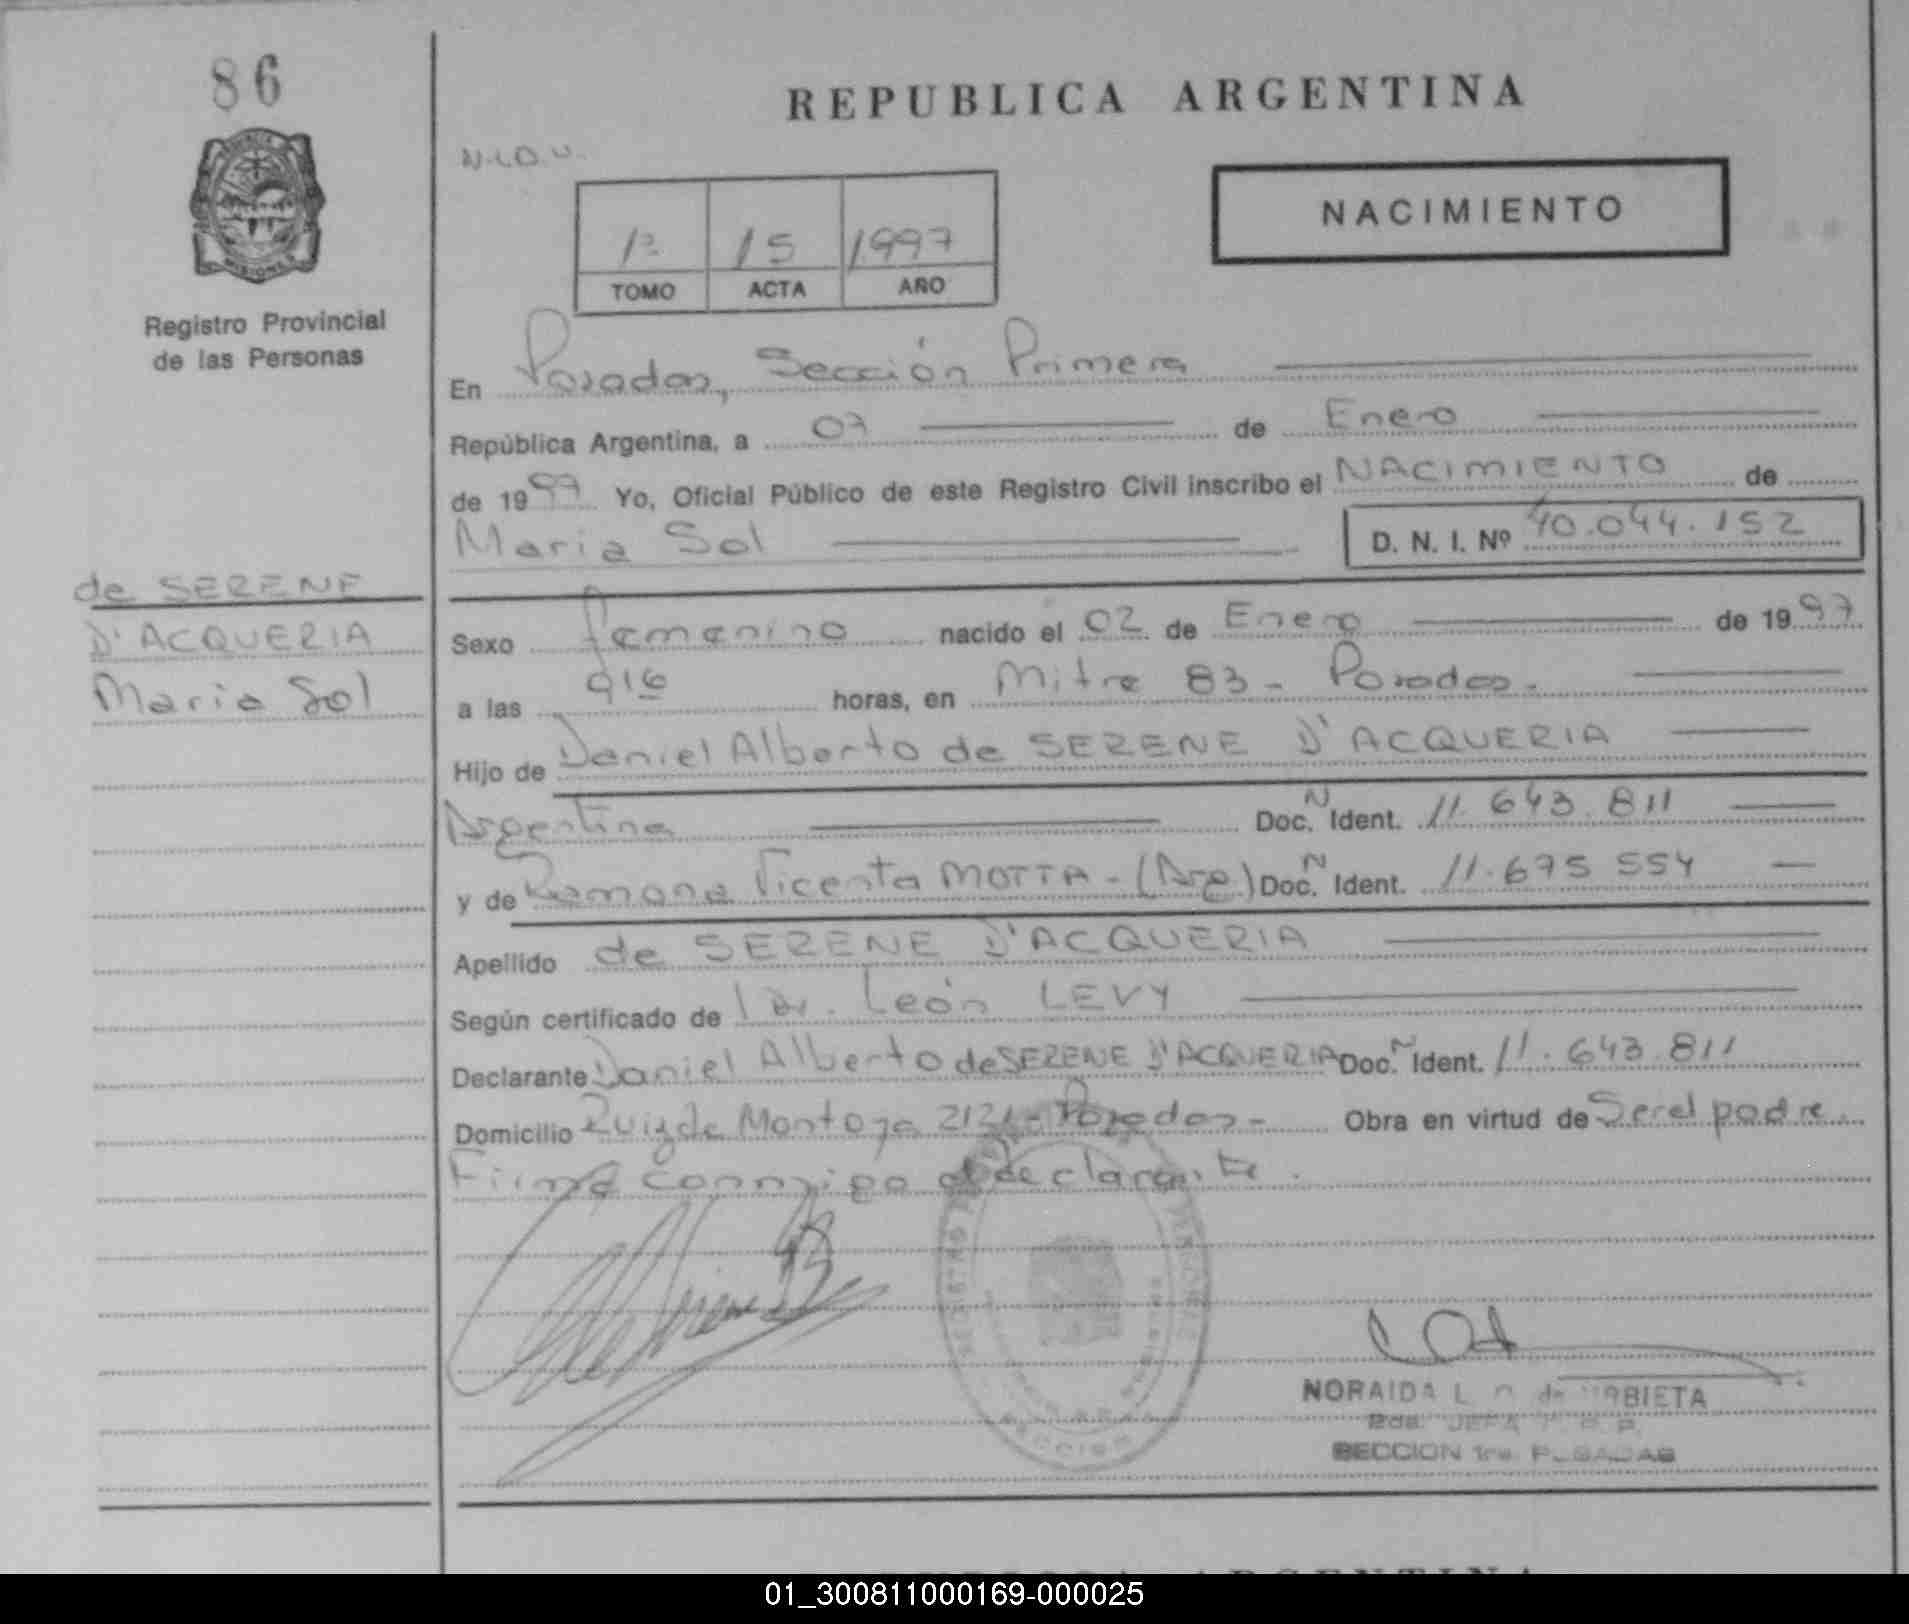 86
REPUBLICA ARGENTINA
MISIONES
NACIMIENTO
1º 15 1997
TOMO ACTA AÑO
Registro Provincial
de las Personas
En Posadas, Sección Primera
República Argentina, a 07 de Enero
de 1997 Yo, Oficial Público de este Registro Civil inscribo el NACIMIENTO de
Maria Sol D. N. I. Nº 40.044.152
de SERENE
D'ACQUERIA
Maria Sol
Sexo femenino nacido el 02 de Enero de 1997
a las 916 horas, en Mitre 83 - Posadas.
Hijo de Daniel Alberto de SERENE D'ACQUERIA
Argentina Doc. N Ident. 11.643.811
y de Ramona Vicenta MOTTA - (Arg) Doc. N Ident. 11.675 554
Apellido de SERENE D'ACQUERIA
Según certificado de Dr. León LEVY
Declarante Daniel Alberto de SERENE D'ACQUERIA Doc. N Ident. 11.643.811
Domicilio Ruiz de Montoya 2121 - Posadas - Obra en virtud de Ser el padre.
Firma conmigo el declarante.
NORAIDA L. de URBIETA
2da. JEFA R. P.
SECCION 1ra. POSADAS
REPUBLICA ARGENTINA
01_300811000169-000025